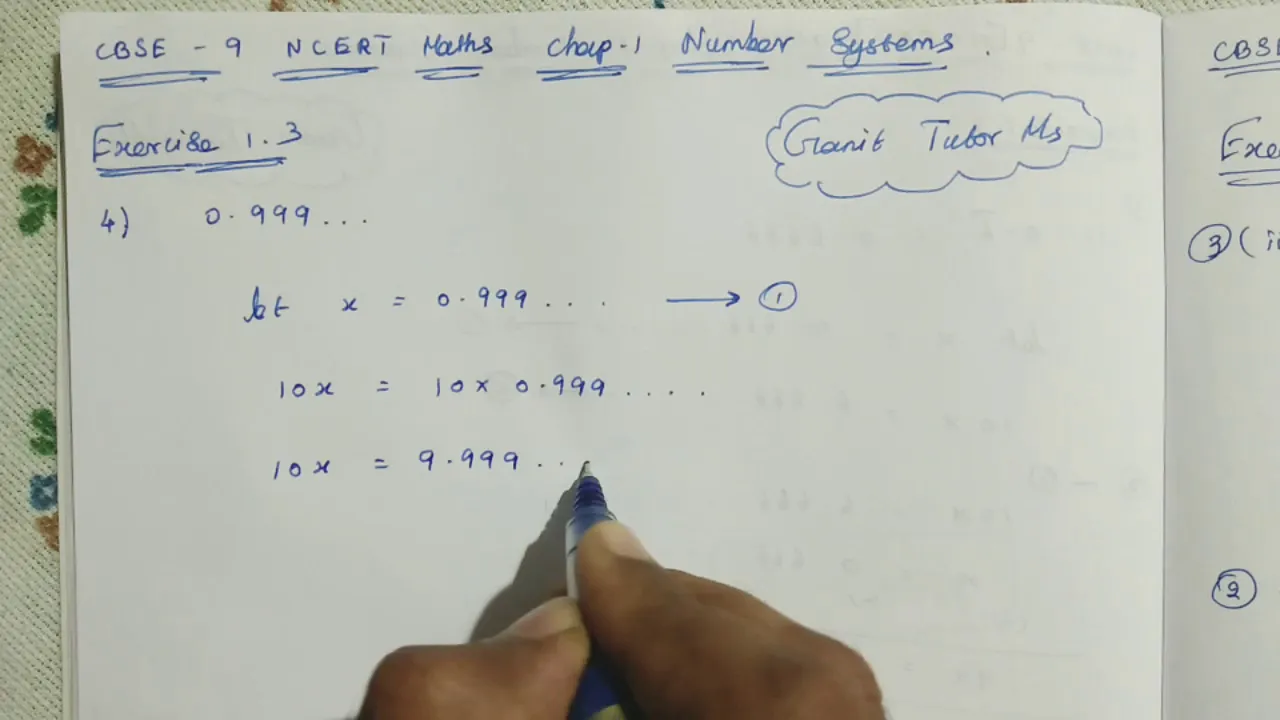 CBSE - 9 NCERT Maths Chap-1 Number Systems.
Exercise 1.3
Ganit Tutor Ms
4) 0.999...
let x = 0.999... → ①
10x = 10 x 0.999....
10x = 9.999...
CBSE
Exe
③ (i
②